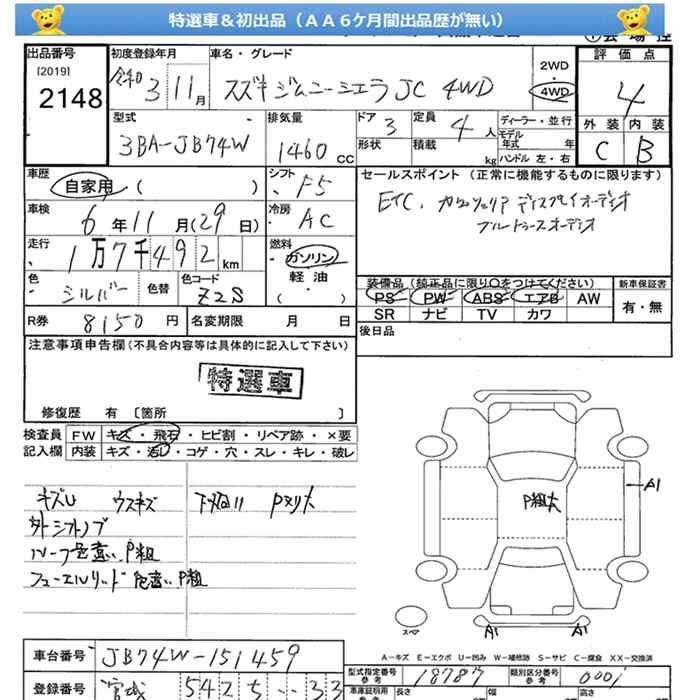 特選車＆初出品（ＡＡ６ケ月間出品歴が無い）
出品番号
[2019]
2148
初度登録年月
令和 3 11 月
車名・グレード
スズキ ジムニーシエラ JC 4WD
2WD
・
4WD
評価点
4
外装 内装
C B
型式
3BA-JB74W
排気量
1460 CC
ドア
3
形状
定員
4 人
積載
kg
ディーラー・並行
モデル
年式 年
ハンドル 左・右
車歴
自家用 ( )
シフト
F5
セールスポイント（正常に機能するものに限ります）
ETC.
ディスプレイオーディオ
ブルートゥースオーディオ
車検
6 年 11 月 (29 日)
冷房
AC
走行
1万7千492 km
燃料
ガソリン
軽油
( )
色
シルバー
色替
色コード
Z2S
装備品（純正品に限り○をつけてください）
PS PW ABS エアB AW
SR ナビ TV カワ
新車保証書
有・無
R券 8150 円
名変期限 月 日
後日品
注意事項申告欄（不具合内容等は具体的に記入して下さい）
特選車
修復歴 有 〔箇所 〕
検査員
記入欄
FW キズ・飛石・ヒビ割・リペア跡・×要
内装 キズ・汚レ・コゲ・穴・スレ・キレ・破レ
キズU ウスキズ 下廻リ Pヌリ大
外シフトノブ
ルーフ色違い、P粗
フューエルリッド色違い、P粗
A1
P粗大
スペア
A1 A1
A-キズ E-エクボ U-凹み W-補修跡 S-サビ C-腐食 XX-交換済
車台番号 JB74W-151459
型式指定番号
参考
18787
類別区分番号
参考
0001
登録番号 宮城 542 5 ・・33
車庫証明用
長さ
幅
高さ